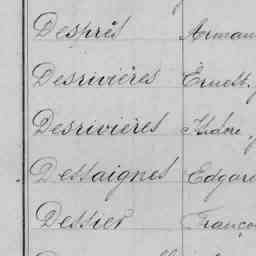 Desprès Arman
Desrivières Ernest
Desrivières Isidore
Dessaignes Edgard
Dessier Franço